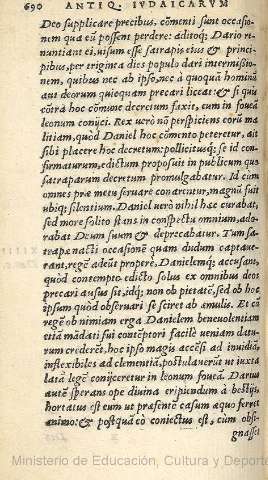 690 ANTIQ. IVDAICARVM
Deo supplicare precibus, cõmenti sunt occasio-
nem qua eũ possent perdere: aditoq; Dario re-
nuntiant ei, uisum esse satrapis eius & princi-
pibus, per triginta dies populo dari intermißio-
nem, quibus nec ab ipso, nec à quoquã hominũ
aut deorum quiequam precari liceat: & si quis
cõtra hoc cõmune decretum faxit, eum in foueã
leonum conijci. Rex uerò nõ perspiciens eorũ ma
litiam, quòd Daniel hoc cõmento peteretur, ait
sibi placere hoc decretum: pollicitusq; se id con-
firmaturum, edictum proposuit in publicum quo
satraparum decretum promulgabatur. Id cùm
omnes præ metu seruare conarentur, magnũ fuit
ubiq; silentium. Daniel uerò nihil hæc curabat,
sed more solito stans in conspectu omnium, ado-
rabat Deum suum & deprecabatur. Tum sa-
trapæ nacti occasionẽ quam dudum captaue-
rant, regẽ adeũt properè, Danielemq; accusant,
quòd contempto edicto solus ex omnibus deos
precari ausus sit, idq; non ob pietatẽ, sed ob hoc
ipsum quòd obseruari se sciret ab æmulis. Et cũ
regẽ ob nimiam erga Danielem beneuolentiam
etiã mãdati sui contẽptori facilè ueniam datu-
rum crederẽt, hoc ipso magis accẽsi ad inuidiã,
inflexibiles ad clementiã, postulauerũt ut iuxta
latã legẽ conijceretur in leonum foueã. Darius
autẽ sperans ope diuina eripiundum à bestijs,
hortatus est eum ut præsentẽ casum æquo ferret
animo: & postquã cõ coniectus est, cùm obsi-
gnasset
Ministerio de Educación, Cultura y Deporte